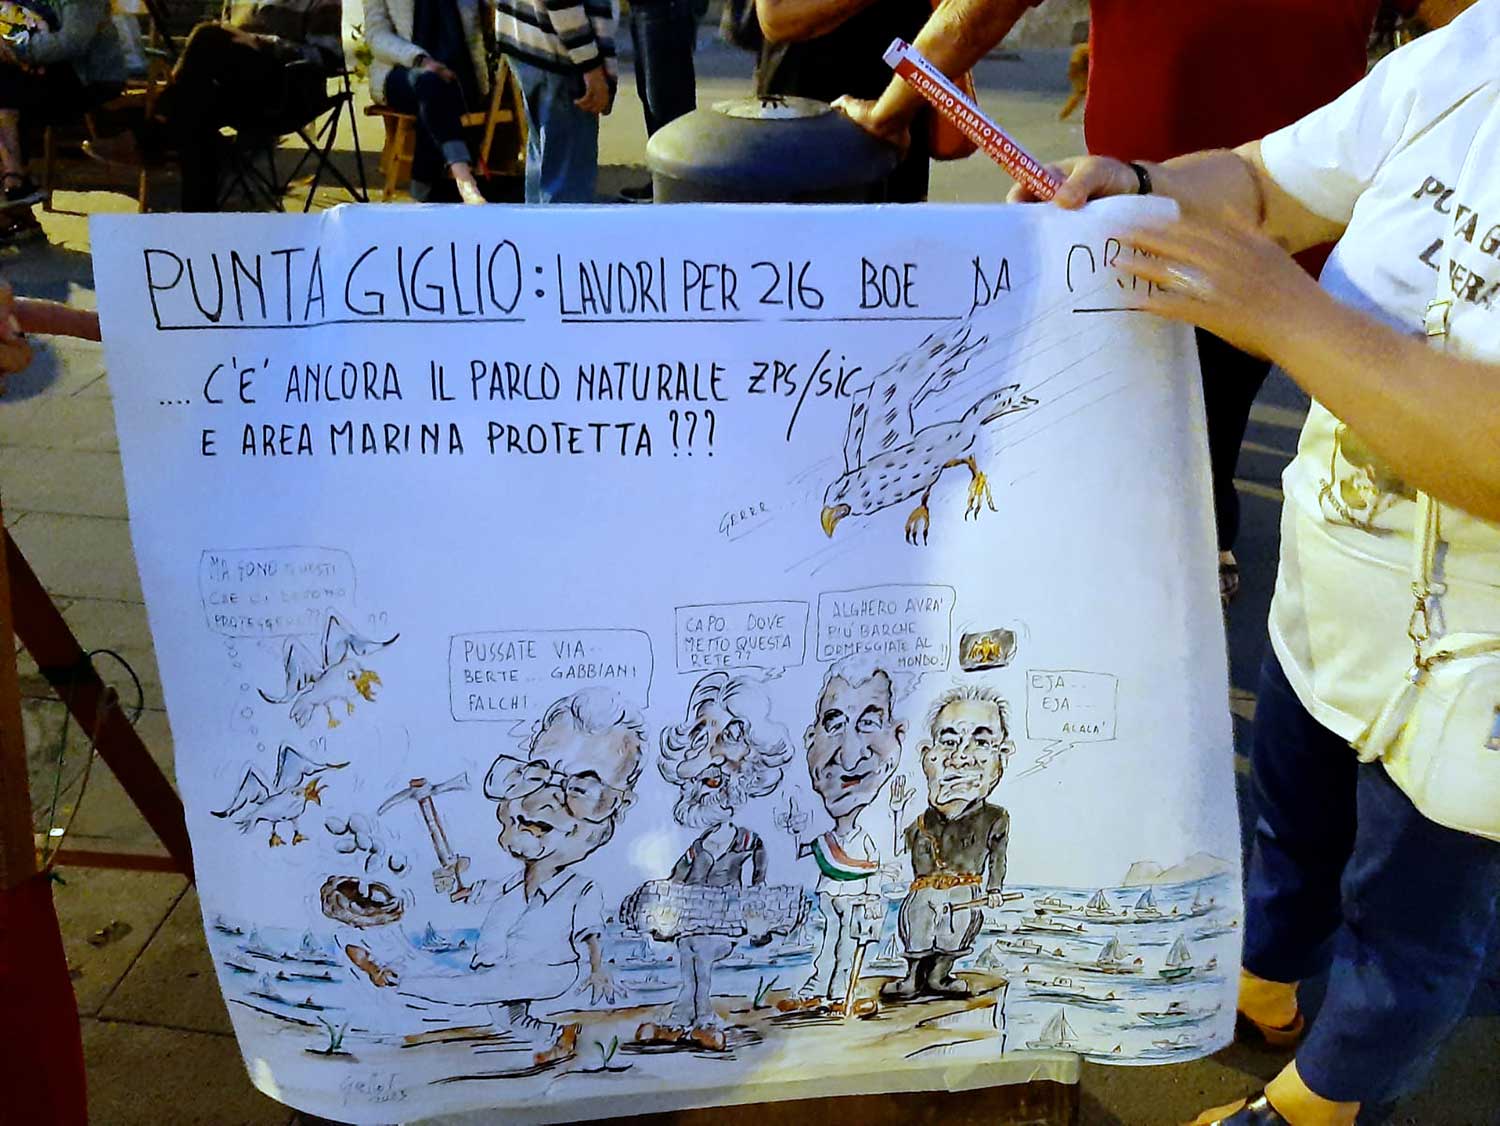 ALGHERO SABATO 14 OTTOBRE
PUNTA GIGLIO: LAVORI PER 216 BOE DA
.... C'E' ANCORA IL PARCO NATURALE ZPS/SIC
E AREA MARINA PROTETTA ???
GRRRR
MA SONO QUESTI
CHE CI DEVONO
PROTEGGERE??
??
??
PUSSATE VIA..
BERTE... GABBIANI
FALCHI
CAPO.. DOVE
METTO QUESTA
RETE??
ALGHERO AVRA'
PIU' BARCHE
ORMEGGIATE AL
MONDO!!
EJA..
EJA...
ALALA'